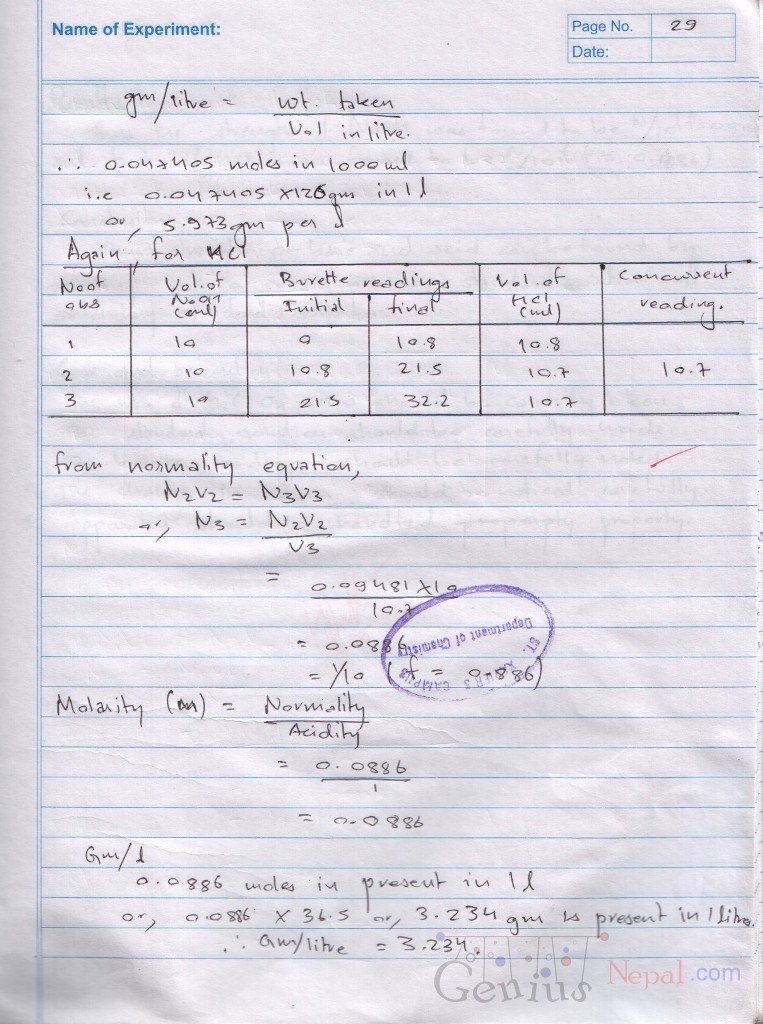 Name of Experiment:
Page No. 29
Date:
gm/litre = wt. taken
Vol in litre.
∴ 0.047405 moles in 1000ml
i.e 0.047405 ×126gm in 1l
or, 5.973gm per l
Again, for HCl
No of obs | Vol. of NaOH (ml) | Burette readings Initial | final | Vol. of HCl (ml) | Concurrent reading.
1 | 10 | 0 | 10.8 | 10.8
2 | 10 | 10.8 | 21.5 | 10.7 | 10.7
3 | 10 | 21.5 | 32.2 | 10.7
from normality equation,
N2V2 = N3V3
or, N3 = N2V2
V3
= 0.09481 ×10
10.7
= 0.0886
= 1/10 (f = 0.886)
Department of Chemistry
ST. CAMPUS
Molarity (m) = Normality
Acidity
= 0.0886
1
= 0.0886
Gm/l
0.0886 moles in present in 1l
or, 0.0886 × 36.5 or, 3.234 gm is present in 1 litre.
∴ Gm/litre = 3.234.
Genius Nepal.com